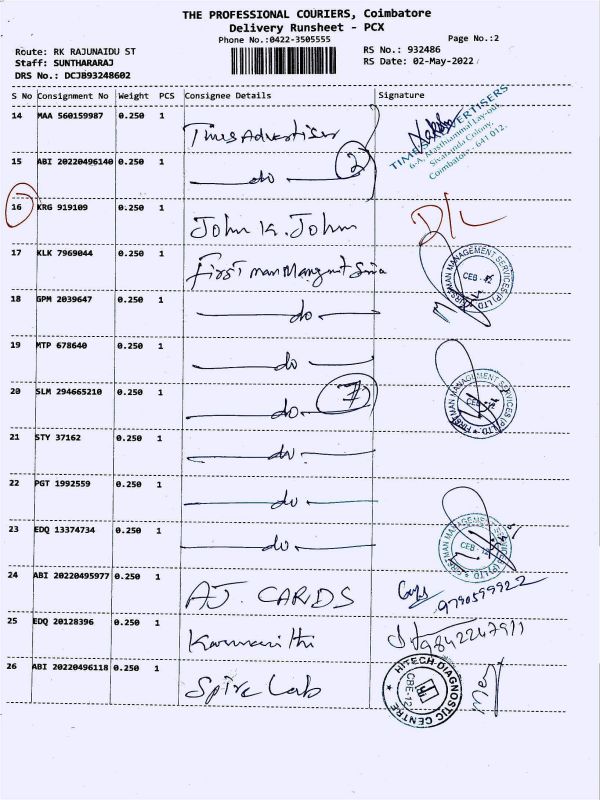 THE PROFESSIONAL COURIERS, Coimbatore
Delivery Runsheet - PCX
Phone No.:0422-3505555 Page No.:2
Route: RK RAJUNAIDU ST RS No.: 932486
Staff: SUNTHARARAJ RS Date: 02-May-2022
DRS No.: DCJB93248602
S No Consignment No Weight PCS Consignee Details Signature
14 MAA 560159987 0.250 1 Times Advertiser
TIMES ADVERTISERS
6-A, Masthiammal Lay-out,
Sivananda Colony,
Coimbatore - 641 012.
15 ABI 20220496140 0.250 1 do 2
16 KRG 919109 0.250 1 John K. John D/L
17 KLK 7969044 0.250 1 First man Mangmt
FIRSTMAN MANAGEMENT SERVICES (P) LTD
18 GPM 2039647 0.250 1 do
19 MTP 678640 0.250 1 do
20 SLM 294665210 0.250 1 do 7
FIRSTMAN MANAGEMENT SERVICES (P) LTD
21 STY 37162 0.250 1 do
22 PGT 1992559 0.250 1 do
23 EDQ 13374734 0.250 1 do
FIRSTMAN MANAGEMENT SERVICES (P) LTD
24 ABI 20220495977 0.250 1 AJ. CARDS 9790599922
25 EDQ 20128396 0.250 1 9842247911
26 ABI 20220496118 0.250 1 Spire Lab
HITECH DIAGNOSTIC CENTRE
CBE-12